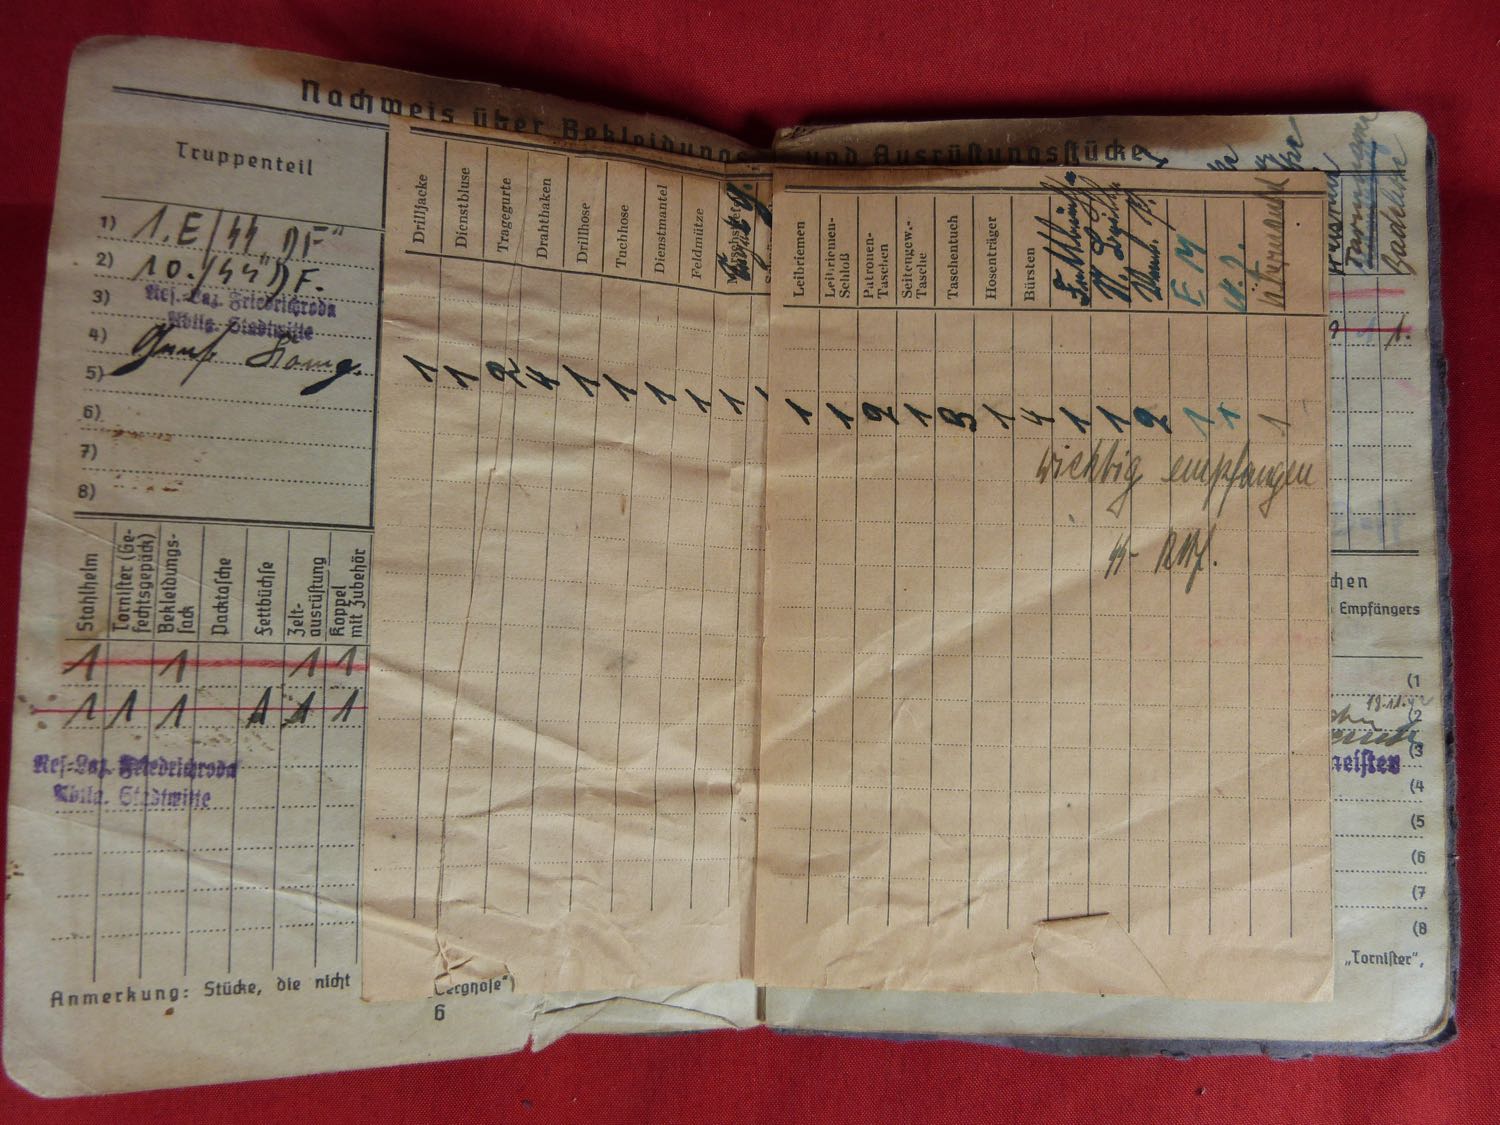 Nachweis über Bekleidungs- und Ausrüstungsstücke
Truppenteil
1) 1. E/SS „DF“
2) 10./SS „DF.
3) Res.-Laz. Friedrichroda
Abtlg. Stadtmitte
4)
5)
6)
7)
8)
Stahlhelm
Tornister (Ge-
fechtsgepäck)
Bekleidungs-
sack
Packtasche
Fettbüchse
Zelt-
ausrüstung
Koppel
mit Zubehör
1 1 1 1
1 1 1 1 1 1
Res.-Laz. Friedrichroda
Abtlg. Stadtmitte
Anmerkung: Stücke, die nicht
Berghose“)
6
Drilljacke
Dienstbluse
Tragegurte
Drahthaken
Drillhose
Tuchhose
Dienstmantel
Feldmütze
1 1 2 4 1 1 1 1 1
Leibriemen
Leibriemen-
Schloß
Patronen-
Taschen
Seitengew.-
Tasche
Taschentuch
Hosenträger
Bürsten
E M
1 1 2 1 3 1 4 1 1 2 1 1 1
richtig empfangen
SS-
Badehose
1.
chen
Empfängers
(1
19.11.42
(2
(3
meister
(4
(5
(6
(7
(8
„Tornister“,